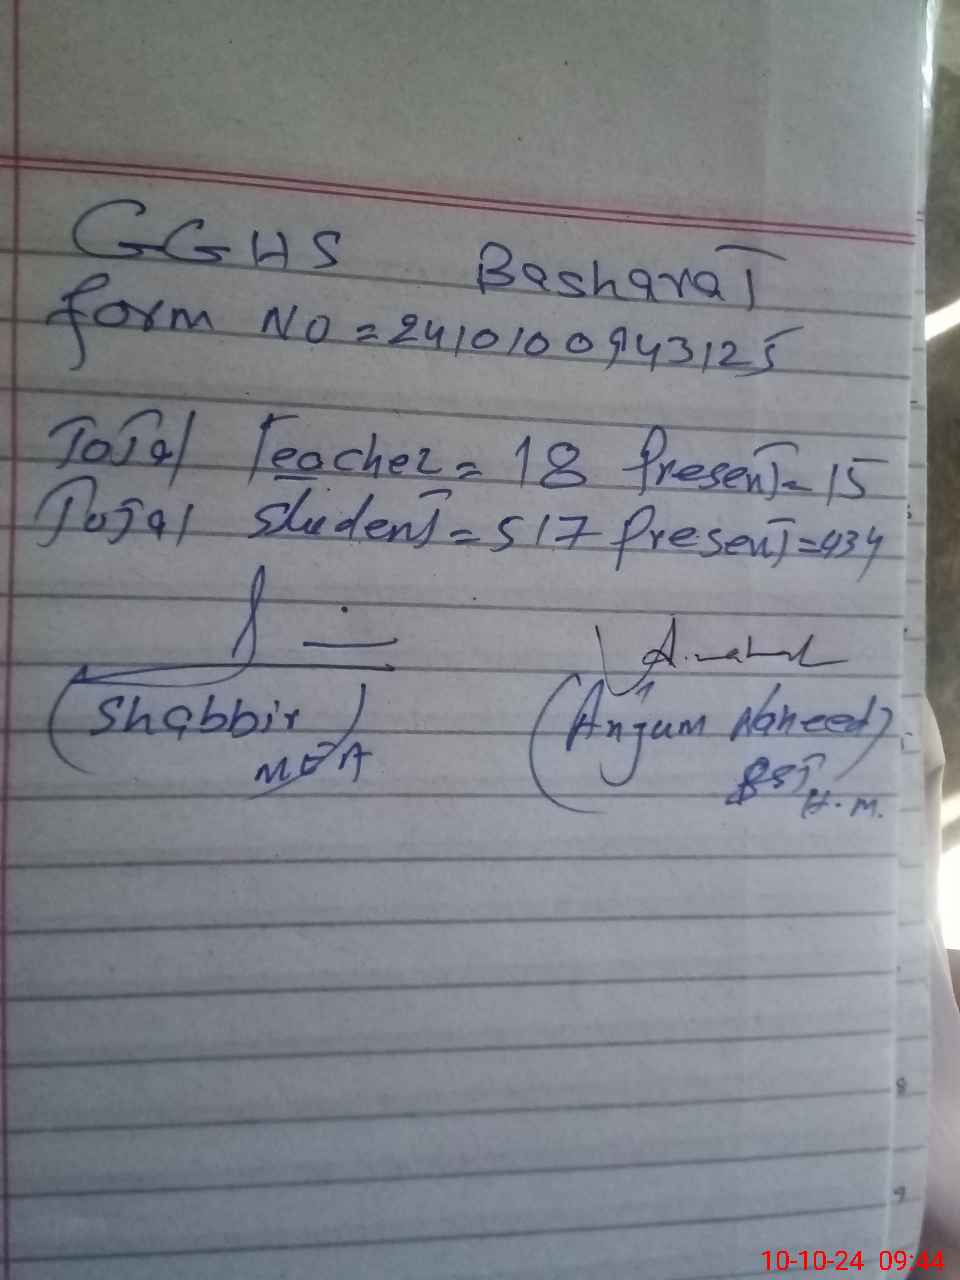 GGHS Basharat
form No = 2410100943125
Total Teacher = 18 Present = 15
Total Student = 517 Present = 434
(Shabbir)
MEA
(Anjum Naheed)
H.M.
8
9
10-10-24 09:44